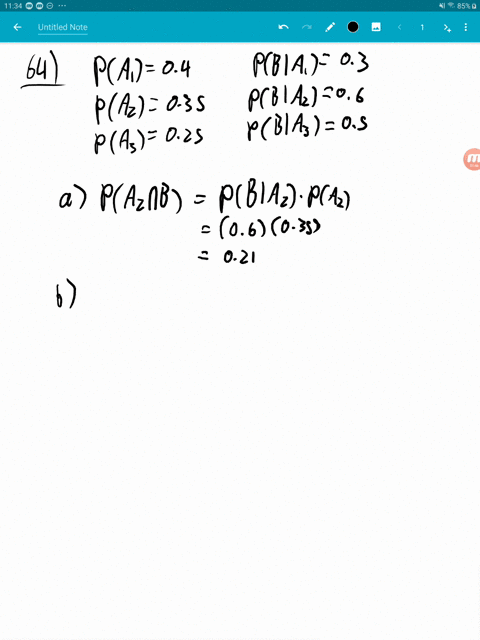 11:34
85%
Untitled Note
1
64) P(A₁) = 0.4 P(B|A₁) = 0.3
P(A₂) = 0.35 P(B|A₂) = 0.6
P(A₃) = 0.25 P(B|A₃) = 0.5
a) P(A₂∩B) = P(B|A₂)·P(A₂)
= (0.6)(0.35)
= 0.21
b)